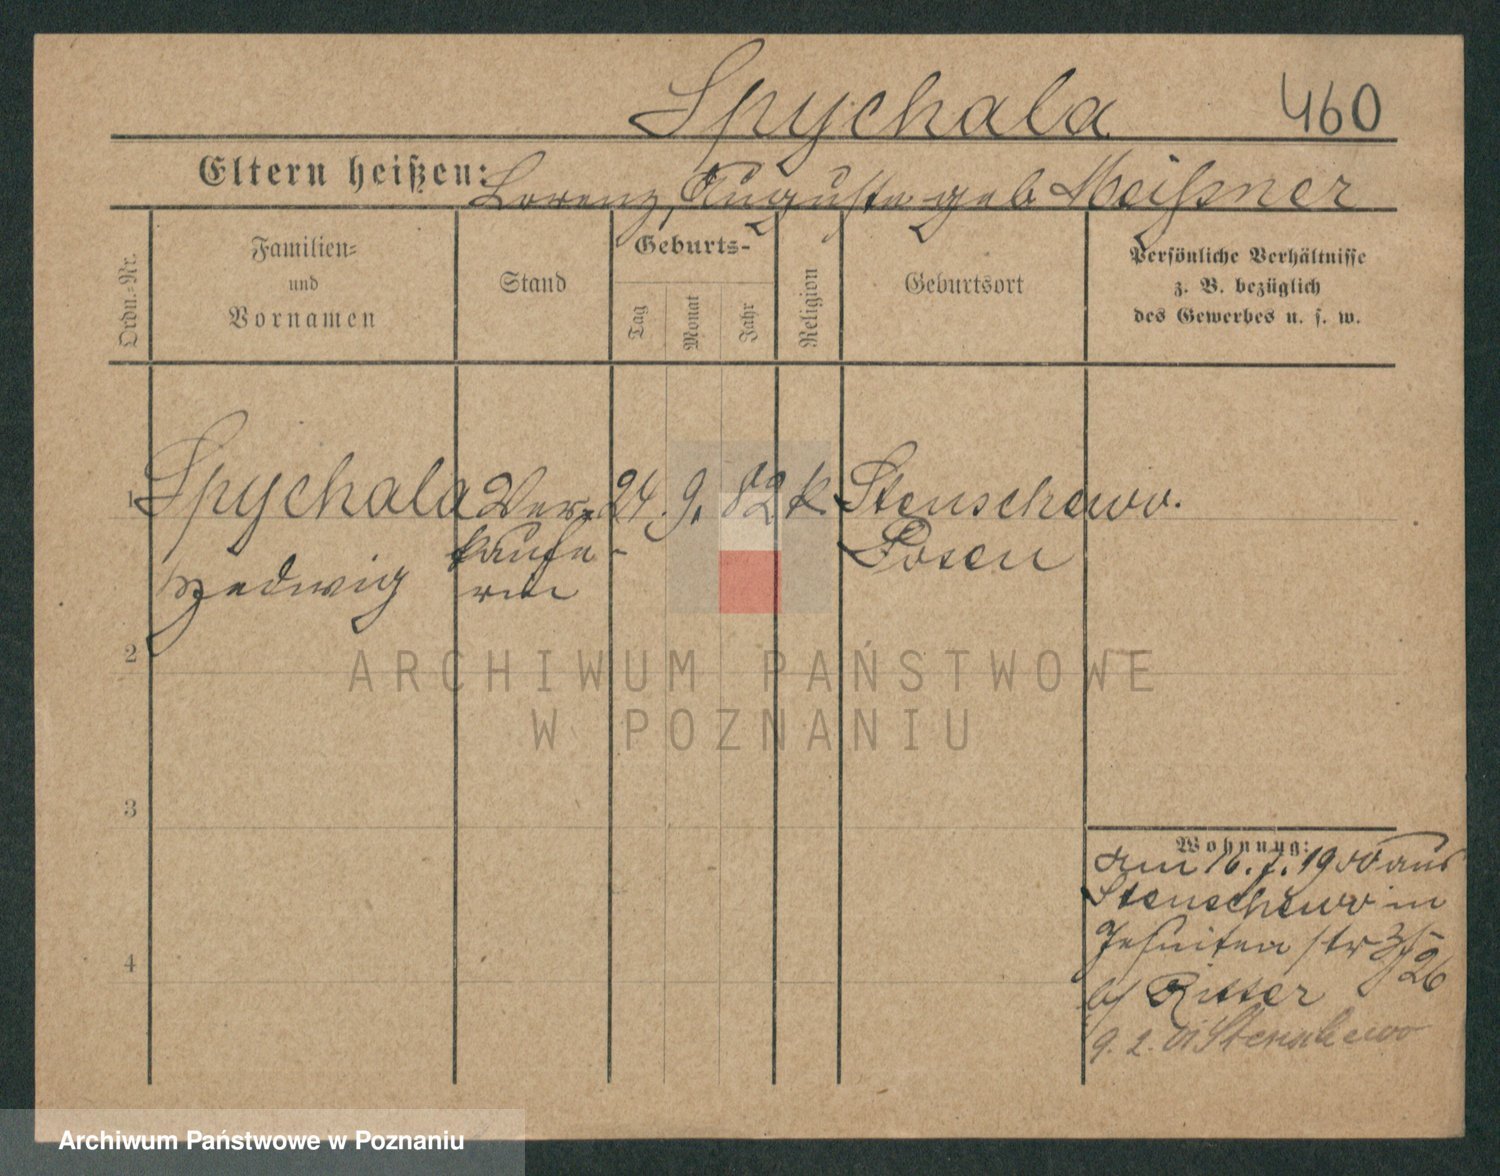 Spychala 460
Eltern heißen: Lorenz, Auguste geb Meißner
Ordn.-Nr.
Familien-
und
Vornamen
Stand
Geburts-
Tag
Monat
Jahr
Religion
Geburtsort
Persönliche Verhältnisse
z. B. bezüglich
des Gewerbes u. s. w.
1 Spychala Ver- 24. 9. 82 k. Stenschewo.
käufe- Posen
Hedwig rin
2
ARCHIWUM PAŃSTWOWE
W POZNANIU
3
Wohnung:
am 16. 7. 1900 aus
Stenschewo in
4
Jesuiten str
b/ Ritter
9. 2. 01 Stenschewo
Archiwum Państwowe w Poznaniu